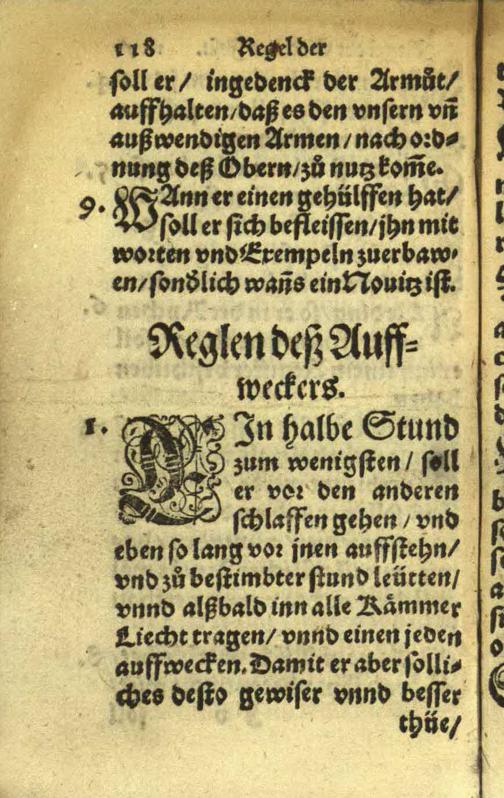 118 Regel der
soll er/ ingedenck der Armůt/
auffhalten/daß es den vnsern vñ
außwendigen Armen/nach ord⸗
nung deß Obern/zů nutz kom̃e.
9. WAnn er einen gehülffen hat/
soll er sich befleissen/jhn mit
worten vnd Exempeln zuerbaw⸗
en/sonďlich wañs ein Nouitz ist.
Reglen deß Auff⸗
weckers.
1. EIn halbe Stund
zum wenigsten/ soll
er vor den anderen
schlaffen gehen/vnd
eben so lang vor jnen auffstehn/
vnd zů bestimbter stund leütten/
vnnd alßbald inn alle Kämmer
Liecht tragen/ vnnd einen jeden
auffwecken. Damit er aber solli⸗
ches desto gewiser vnnd besser
thüe/